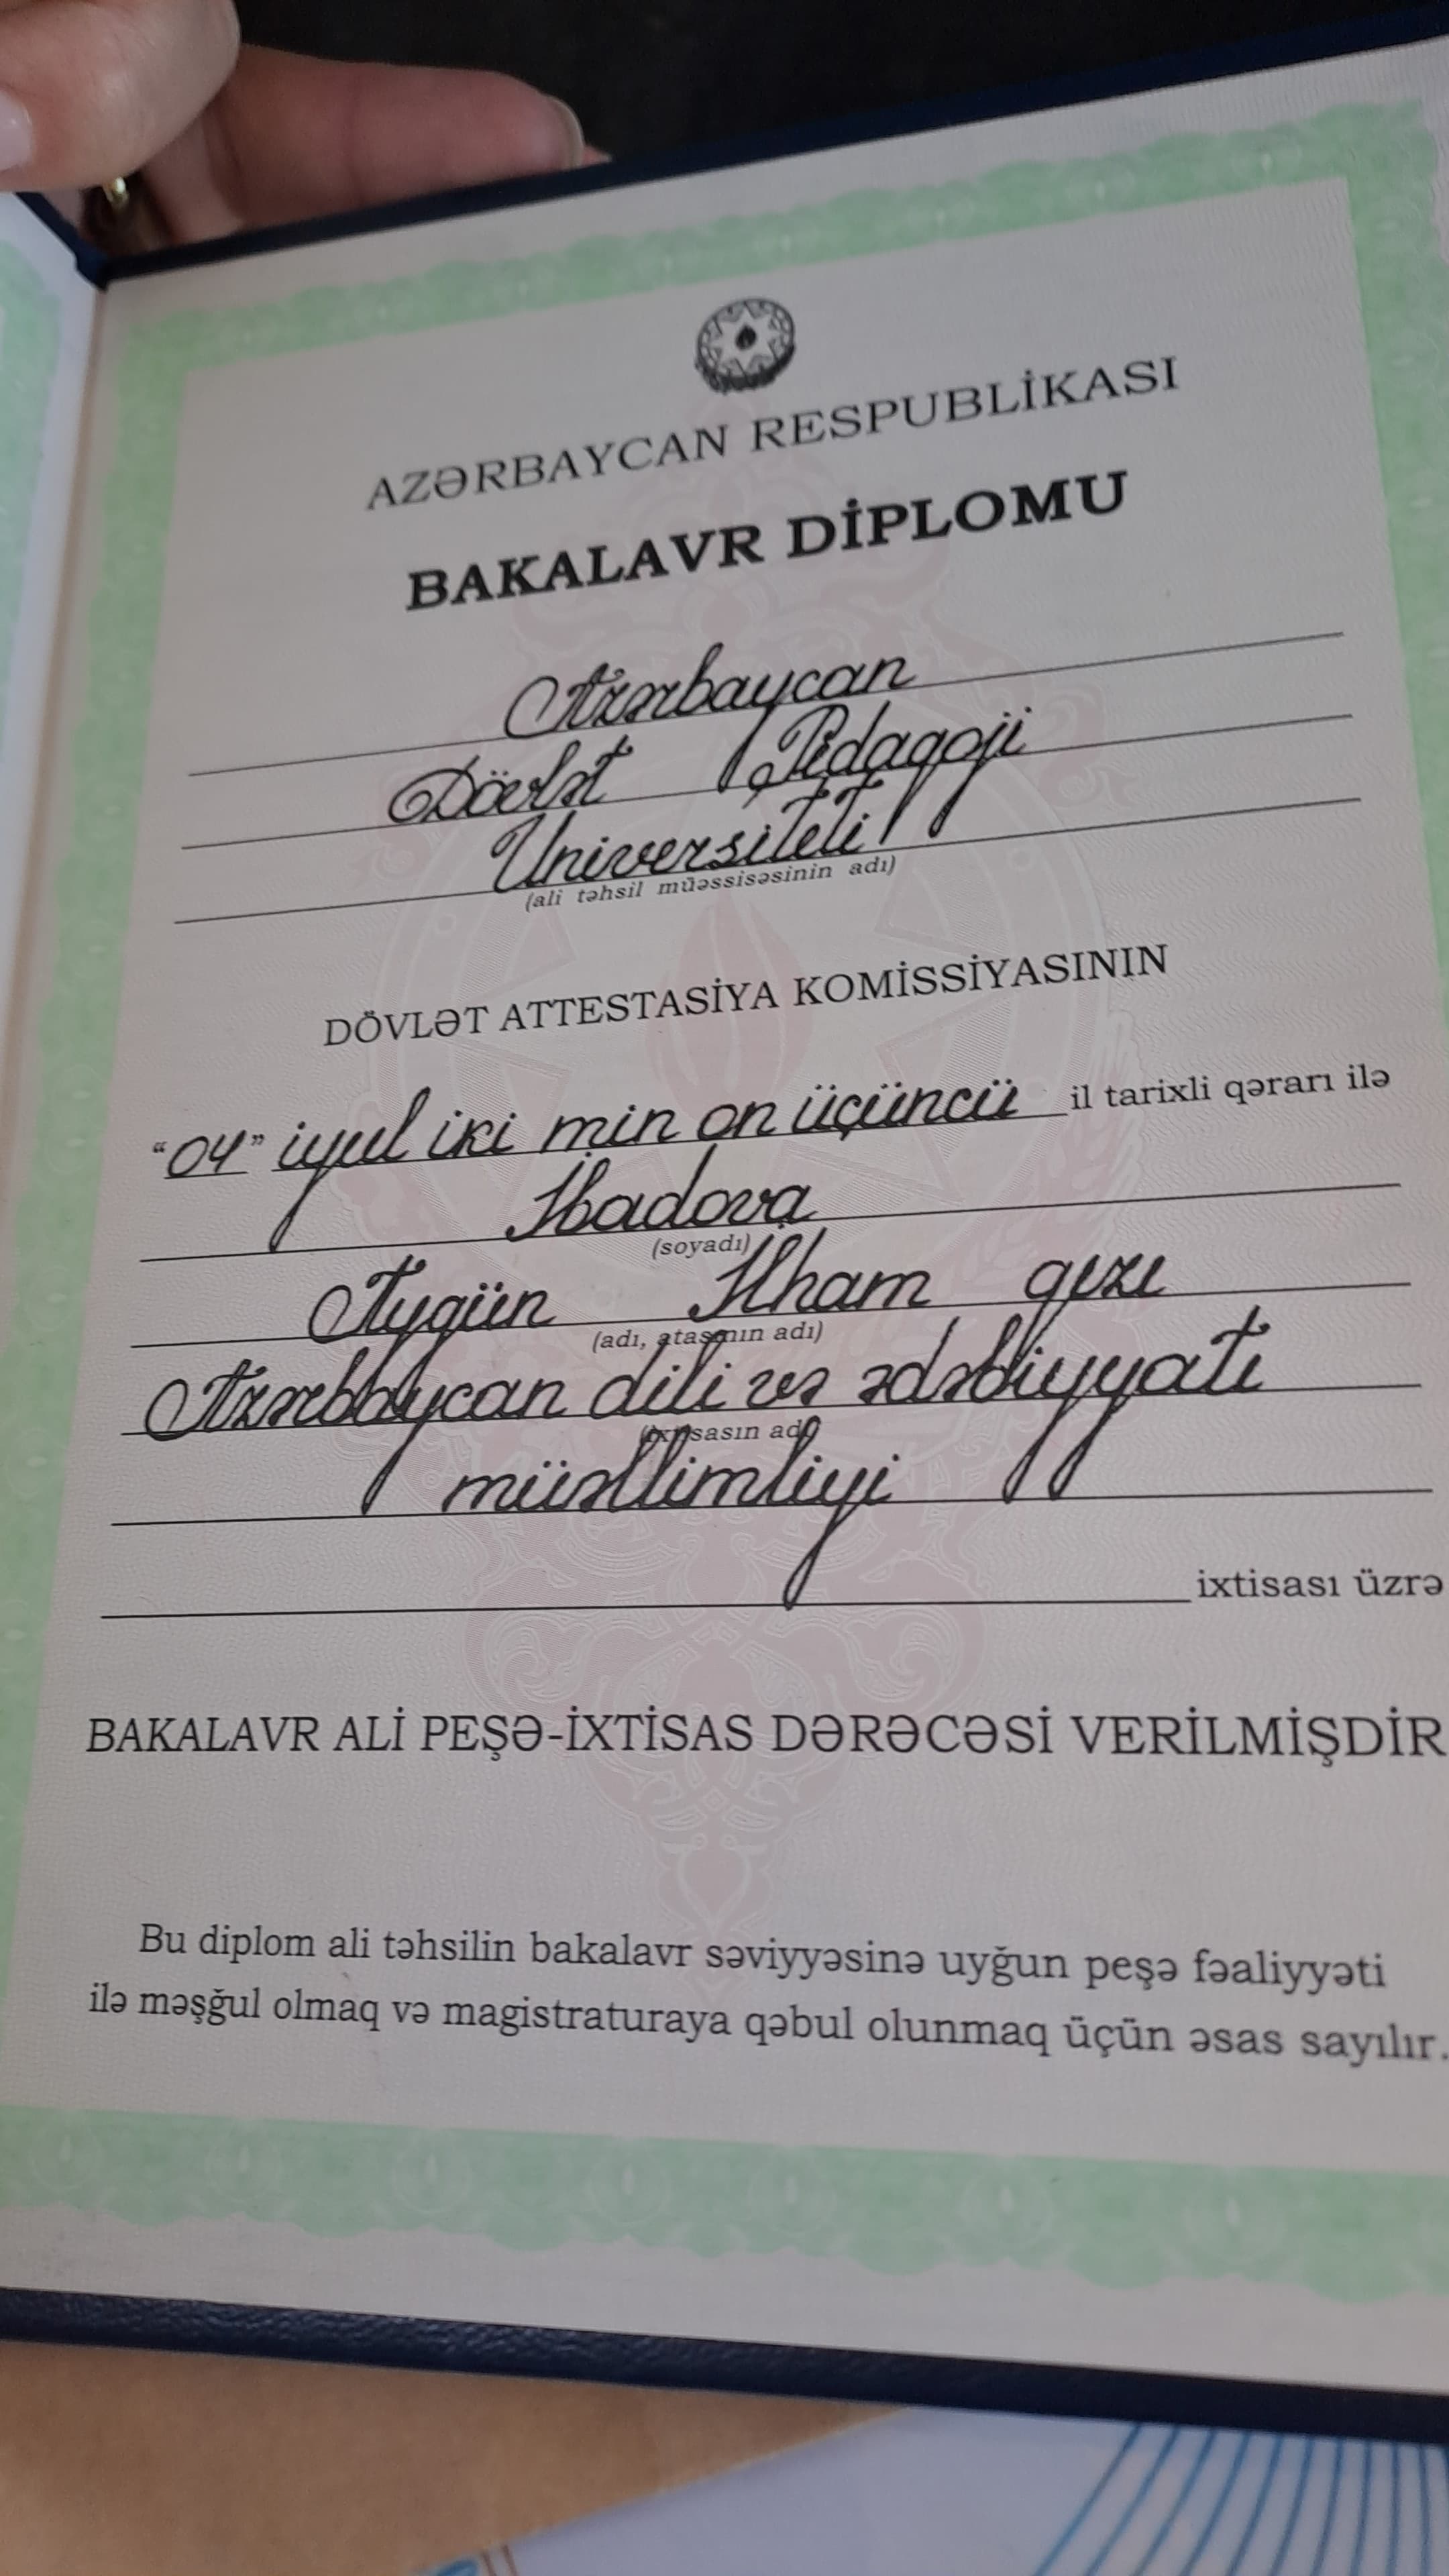 AZƏRBAYCAN RESPUBLİKASI
BAKALAVR DİPLOMU
Azərbaycan
Dövlət Pedaqoji
Universiteti
(ali təhsil müəssisəsinin adı)
DÖVLƏT ATTESTASİYA KOMİSSİYASININ
"04" iyul iki min on üçüncü il tarixli qərarı ilə
İbadova
(soyadı)
Aygün İlham qızı
(adı, atasının adı)
Azərbaycan dili və ədəbiyyatı
(ixtisasın adı)
müəllimliyi
ixtisası üzrə
BAKALAVR ALİ PEŞƏ-İXTİSAS DƏRƏCƏSİ VERİLMİŞDİR
Bu diplom ali təhsilin bakalavr səviyyəsinə uyğun peşə fəaliyyəti
ilə məşğul olmaq və magistraturaya qəbul olunmaq üçün əsas sayılır.